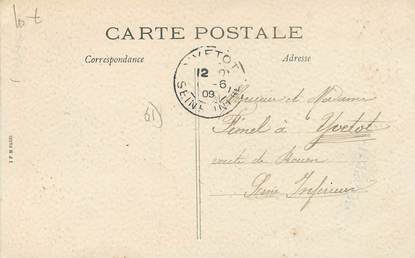 lot
CARTE POSTALE
Correspondance
Adresse
YVETOT
12
-6
09
SEINE INFRE
Monsieur et Madame
Fimel à Yvetot
route de Rouen
Seine Inférieure